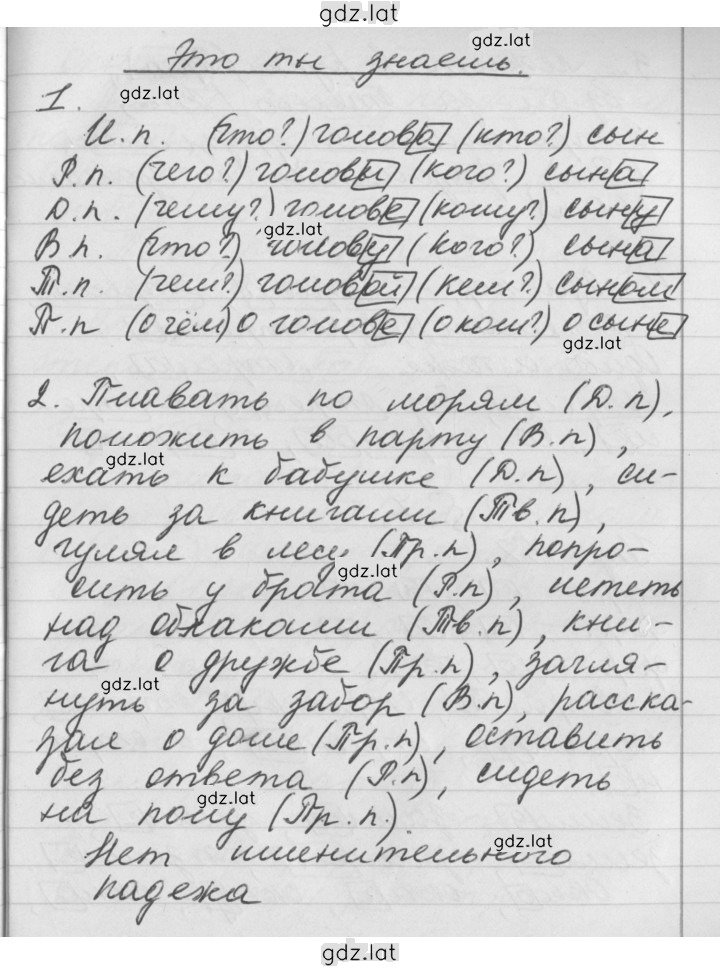 gdz.lat
Это ты знаешь.
gdz.lat
gdz.lat
1.
И.п. (что?) голова (кто?) сын
Р.п. (чего?) головы (кого?) сына
Д.п. (чему?) голове (кому?) сыну
gdz.lat
В.п. (что?) голову (кого?) сына
Т.п. (чем?) головой (кем?) сыном
П.п (о чём) о голове (о ком?) о сыне
gdz.lat
2. Плавать по морям (Д.п),
положить в парту (В.п),
gdz.lat
ехать к бабушке (Д.п), си-
деть за книгами (Тв.п),
гулял в лесу (Пр.п), попро-
gdz.lat
сить у брата (Р.п), лететь
над облаками (Тв.п), кни-
га о дружбе (Пр.п), загля-
gdz.lat
нуть за забор (В.п), расска-
зал о доме (Пр.п), оставить
без ответа (Р.п), сидеть
gdz.lat
на полу (Пр.п).
gdz.lat
Нет именительного
падежа
gdz.lat